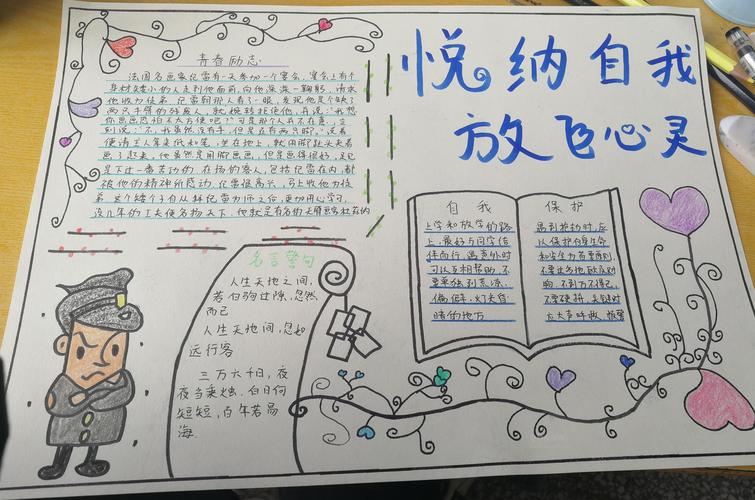 悦纳自我
放飞心灵
青春励志
法国名画家纪雷有一天参加一个宴会，宴会上有个
身材矮小的人走到他面前，向他深深一鞠躬，请求
他收为徒弟。纪雷朝那人看了一眼，发现他是个缺了
两只手臂的残废人，就婉转拒绝他，并说：“我想
你画画恐怕不太方便吧？”可是那个人并不在意，立
刻说：“不，我虽然没有手，但是还有两只脚。”说着
便请主人拿来纸和笔，坐在地上，就用脚趾头夹着
画了起来。他虽然是用脚画画，但是画得很好，足见
是下过一番苦功的。在场的客人，包括纪雷在内，都
被他的精神所感动。纪雷很高兴，马上收他为徒
弟。这个矮个子自从拜纪雷为师之后，更加用心学习，
没几年的工夫便名扬天下，他就是有名的
名言警句
人生天地之间，
若白驹过隙，忽然
而已
人生天地间，忽如
远行客
三万六千日，夜
夜当秉烛。白日何
短短，百年苦易
满。
自我
上学和放学的路
上，最好与同学结
伴而行，遇意外时
可以互相帮助，不
要单独到荒凉、
偏僻、灯光昏
暗的地方
保护
遇到抢劫时，应
以保护自身生命
和安全为首要原则，
不到万不得已，
不要硬拼，关键时
应大声呼救，报警